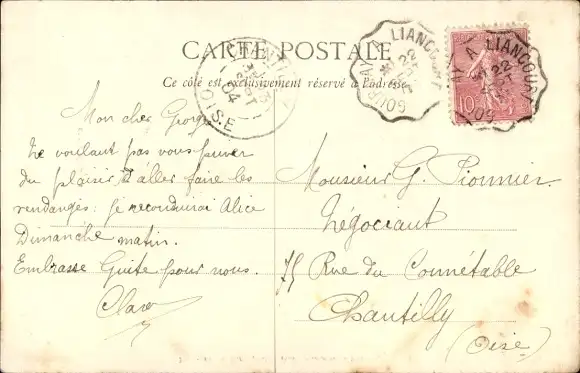 CARTE POSTALE
Ce côté est exclusivement réservé à l'adresse
CHANTILLY
OISE
04
GOURNAY A LIANCOURT
22
GOURNAY A LIANCOURT
22
10
Mon cher George
Ne voulant pas vous priver
du plaisir d'aller faire les
vendanges: je reconduirai Alice
Dimanche matin.
Embrasse Guite pour nous.
Clara
Monsieur G. Pionnier.
Négociant
75 Rue du Connétable
Chantilly
(Oise)